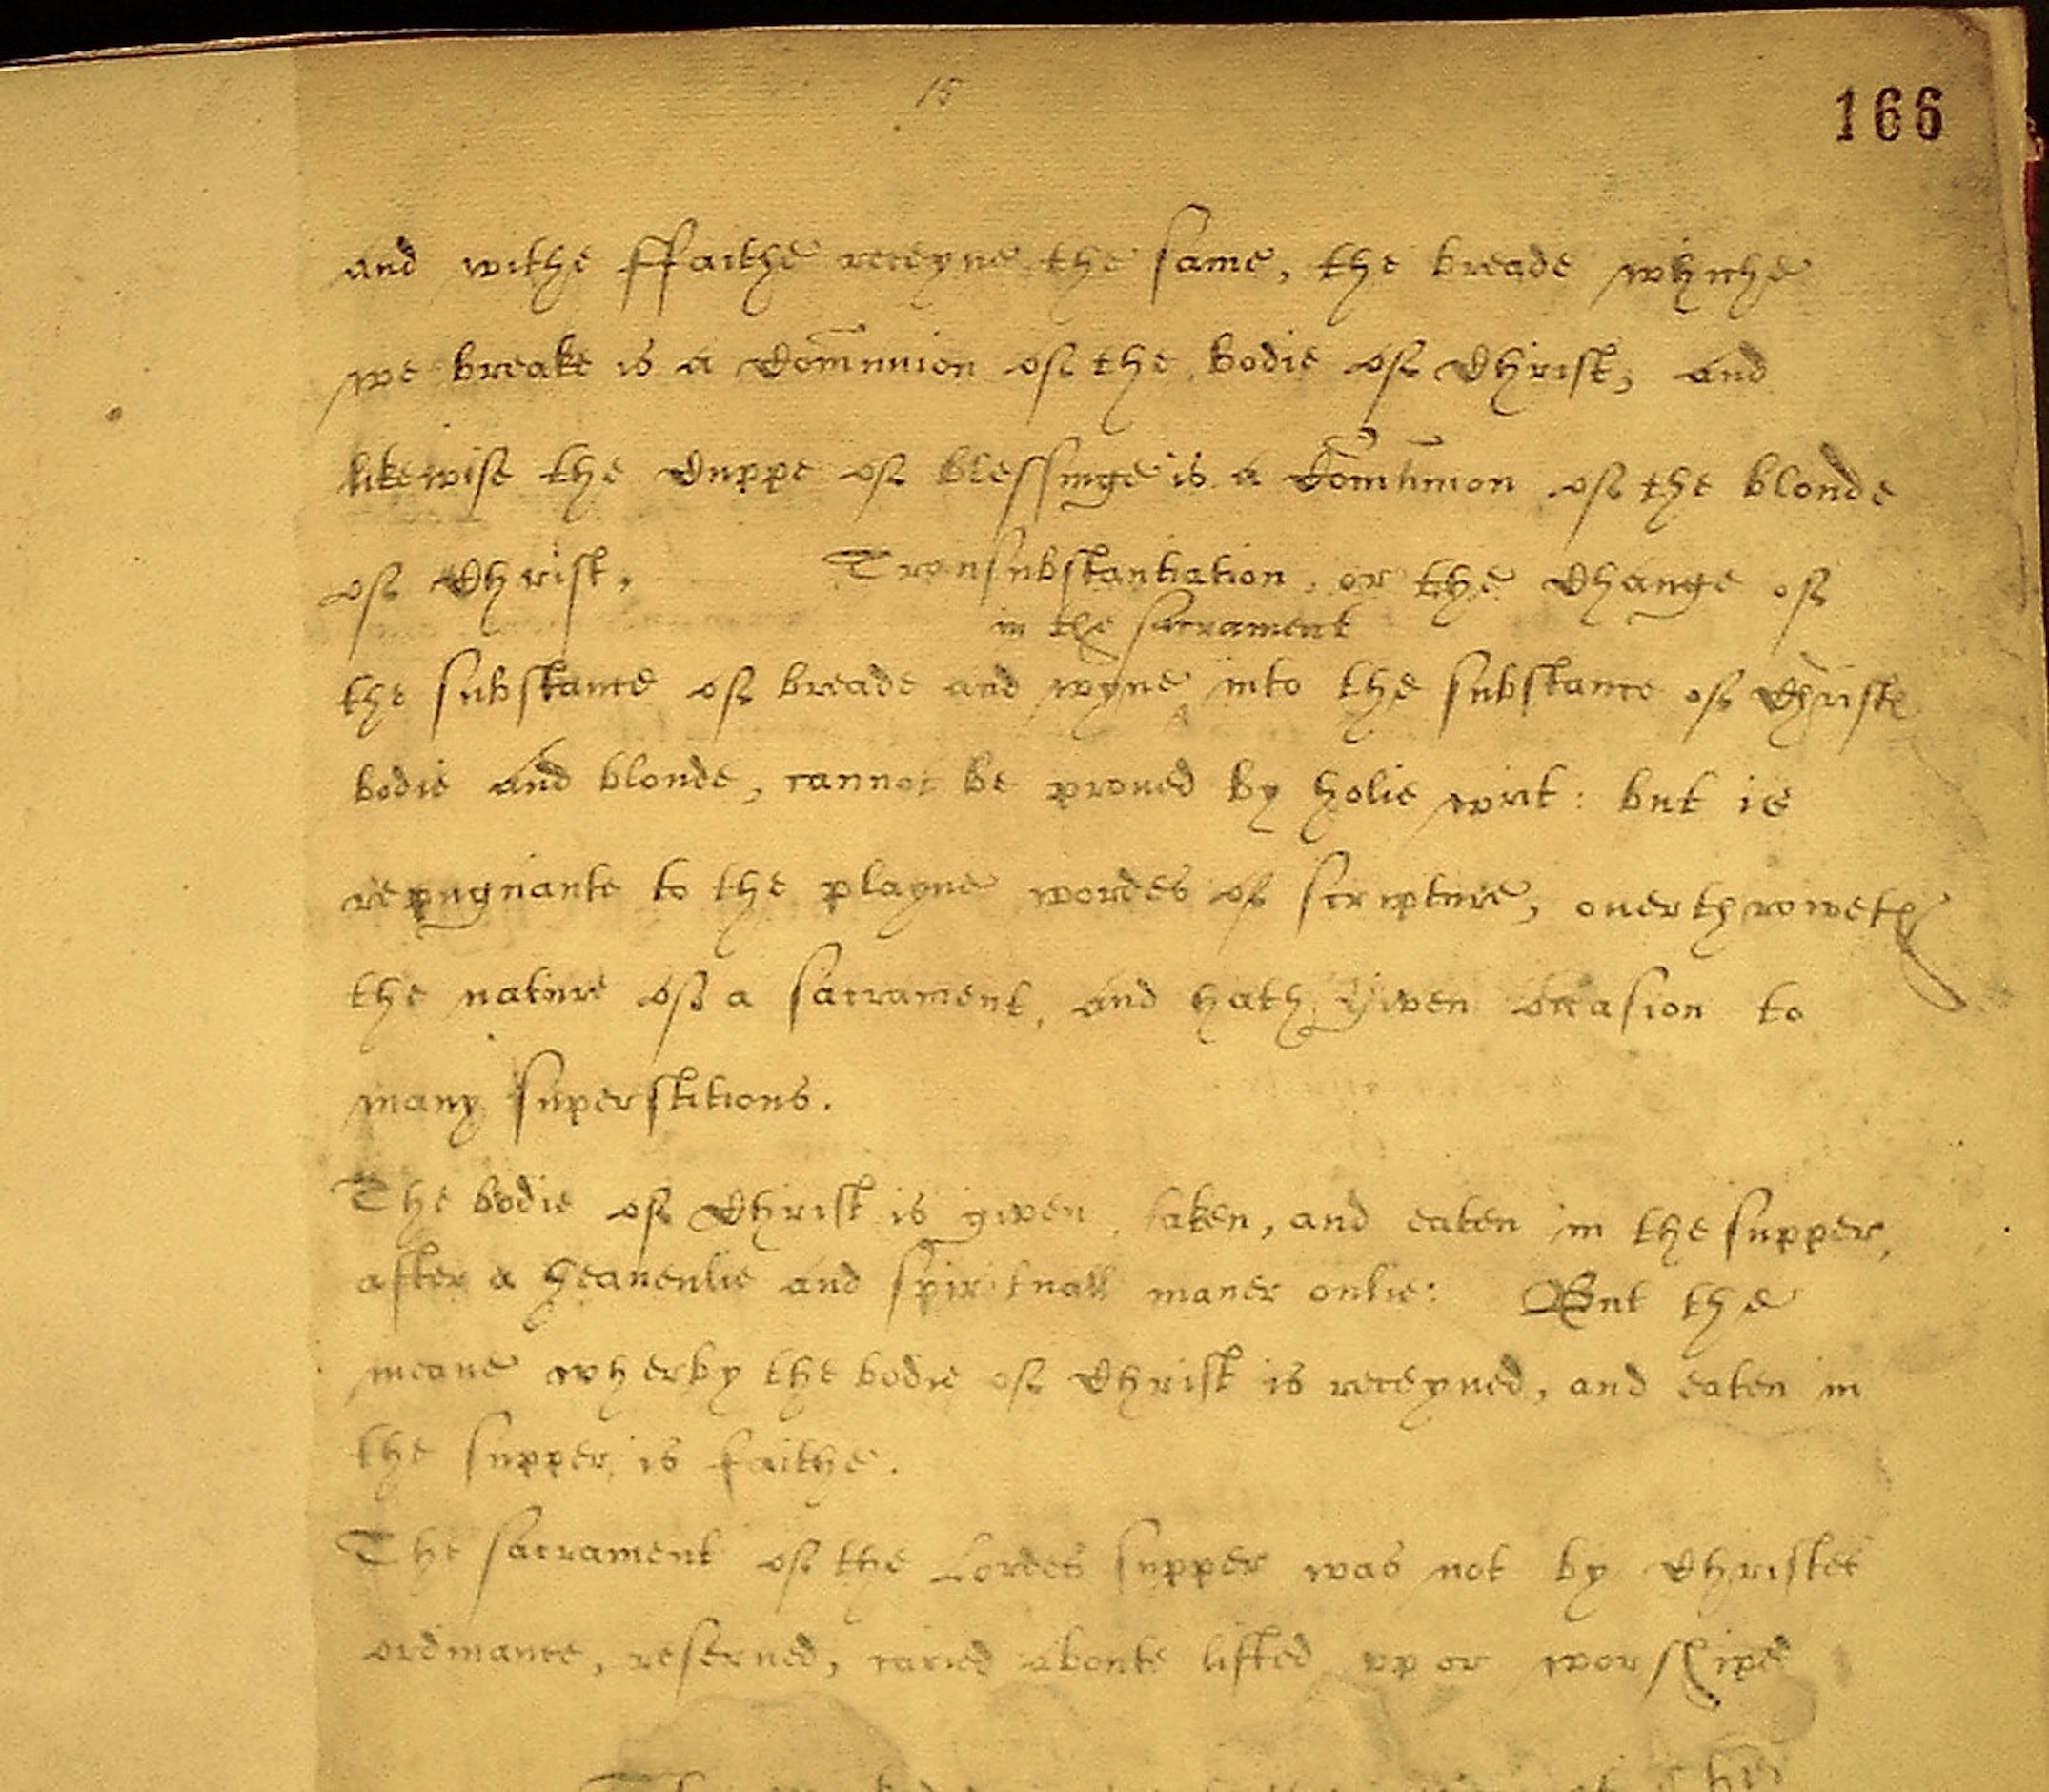 15
166
and withe ffaithe receyue the same, the breade whiche
we breake is a Com̄union of the bodie of Christ, and
likewise the Cuppe of blessinge is a Com̄union of the bloude
of Christ, Transubstantiation, or the Change of
in the sacrament
the substance of breade and wyne into the substance of Christes
bodie and bloude, cannot be proued by holie writ: but is
repugnante to the playne wordes of scripture, ouerthroweth
the nature of a sacrament, and hath given occasion to
many superstitions.
The bodie of Christ is given, taken, and eaten in the supper,
after a heauenlie and spirituall maner onlie: But the
meane wherby the bodie of Christ is receyued, and eaten in
the supper, is faithe.
The sacrament of the Lordes supper was not by Christes
ordinance, reserued, caried aboute lifted vp or worshiped